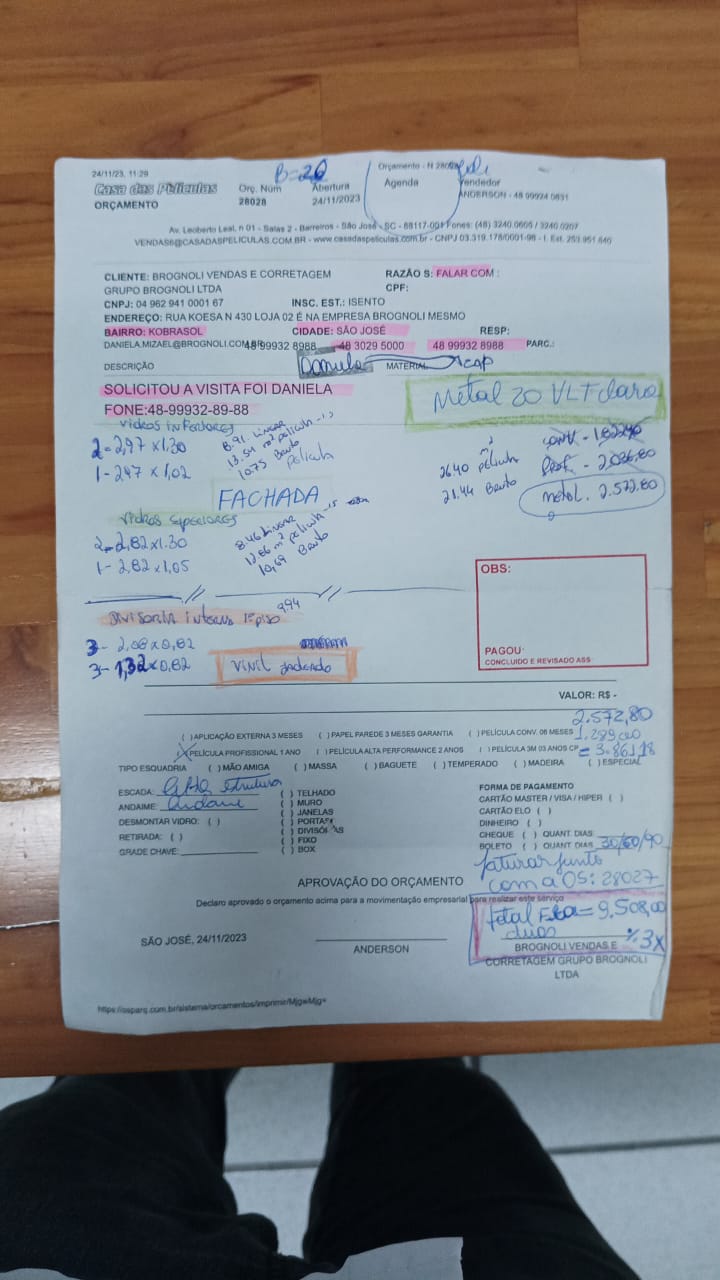 24/11/23, 11:29
B=20
Orçamento - N 28028
Casa das Películas
Orç. Núm
Abertura
Agenda
Vendedor
ORÇAMENTO
28028
24/11/2023
ANDERSON - 48 99924 0831
Av. Leoberto Leal, n 01 - Salas 2 - Barreiros - São José - SC - 88117-001 Fones: (48) 3240 0605 / 3240 0207
VENDAS6@CASADASPELICULAS.COM.BR - www.casadaspeliculas.com.br - CNPJ 03.319.178/0001-98 - I. Est. 253.951.640
CLIENTE: BROGNOLI VENDAS E CORRETAGEM
GRUPO BROGNOLI LTDA
RAZÃO S: FALAR COM :
CPF:
CNPJ: 04 962 941 0001 67
INSC. EST.: ISENTO
ENDEREÇO: RUA KOESA N 430 LOJA 02 É NA EMPRESA BROGNOLI MESMO
BAIRRO: KOBRASOL
CIDADE: SÃO JOSÉ
RESP:
DANIELA.MIZAEL@BROGNOLI.COM.BR
48 99932 8988
48 3029 5000
48 99932 8988
PARC.:
DESCRIÇÃO
MATERIAL
SOLICITOU A VISITA FOI DANIELA
FONE:48-99932-89-88
Metal 20 VLT claro
vidros inferiores
2-2,97 x 1.30
1-2,97 x 1,02
8.91 Linear
13.54 m² película
10.75 Bruto
película
m²
26.40 película
21.44 Bruto
Prof. - 2.036,80
metal. 2.572.80
FACHADA
vidros superiores
2-2,82x1.30
1-2,82x1,05
8.46 Linear
12.86 m² película
10,69 Bruto
Divisoria interna 1º piso
9,94
3-2,08x0,82
3-1,32x0,82
vinil jadeado
OBS:
PAGOU
CONCLUIDO E REVISADO ASS
VALOR: R$ -
2.572,80
( )APLICAÇÃO EXTERNA 3 MESES ( ) PAPEL PAREDE 3 MESES GARANTIA ( )PELÍCULA CONV. 06 MESES
X PELÍCULA PROFISSIONAL 1 ANO ( )PELÍCULA ALTA PERFORMANCE 2 ANOS ( )PELÍCULA 3M 03 ANOS CP
TIPO ESQUADRIA ( )MÃO AMIGA ( )MASSA ( )BAGUETE ( )TEMPERADO ( )MADEIRA ( )ESPECIAL
ESCADA:
ANDAIME:
DESMONTAR VIDRO: ( )
RETIRADA: ( )
GRADE CHAVE:
( ) TELHADO
( ) MURO
( ) JANELAS
( ) PORTAS
( ) DIVISÓRIAS
( ) FIXO
( ) BOX
FORMA DE PAGAMENTO
CARTÃO MASTER / VISA / HIPER ( )
CARTÃO ELO ( )
DINHEIRO ( )
CHEQUE ( ) QUANT. DIAS
BOLETO ( ) QUANT. DIAS 30/60/90
faturar junto
com a OS: 28027
APROVAÇÃO DO ORÇAMENTO
Declaro aprovado o orçamento acima para a movimentação empresarial para realizar este serviço
total = 9.508,00
duas
% 3x
SÃO JOSÉ, 24/11/2023
ANDERSON
BROGNOLI VENDAS E
CORRETAGEM GRUPO BROGNOLI
LTDA
https://osparq.com.br/sistema/orcamentos/imprimir/MjgwMjg=